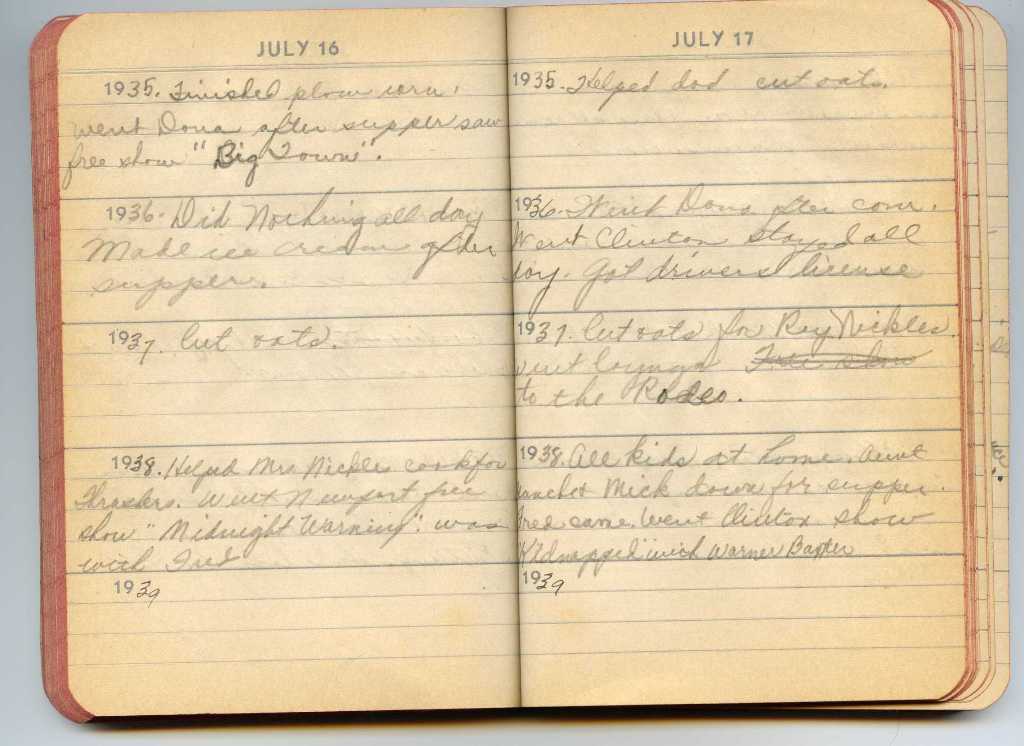 JULY 16
1935. Finished plow corn.
went Dona after supper saw
free show "Big Town".
1936. Did Nothing all day
Made ice cream after
supper.
1937. Cut oats.
1938. Helped Mrs Nickles cook for
thrashers. Went Newport free
show "Midnight Warning". was
with Fred
1939
JULY 17
1935. Helped dad cut oats.
1936. Went Dana after corn.
Went Clinton stayed all
day. Got drivers license
1937. Cut oats for Ray Nickles.
went Cayuga Free show
to the Rodeo.
1938. All kids at home. Aunt
Mick down for supper.
Fred came. Went Clinton show
"Kidnapped" with Warner Baxter
1939